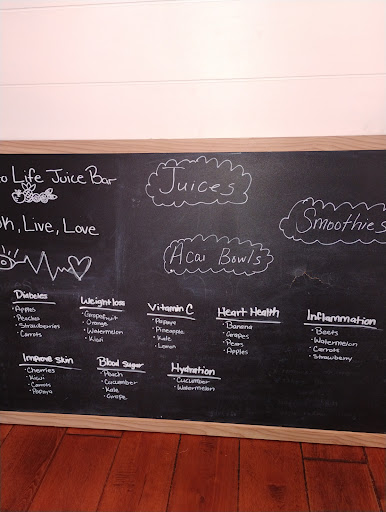 Life Juice Bar
Juices
Smoothies
, Live, Love
Acai Bowls
Diabetes
• Apples
• Peaches
• Strawberries
• Carrots
Weight loss
• Grapefruit
• Orange
• Watermelon
• Kiwi
Vitamin C
• Papaya
• Pineapple
• Kale
• Lemon
Heart Health
• Banana
• Grapes
• Pears
• Apples
Inflammation
• Beets
• Watermelon
• Carrots
• Strawberry
Improve skin
• Cherries
• Kiwi
• Carrots
• Papaya
Blood sugar
• Peach
• Cucumber
• Kale
• Grape
Hydration
• Cucumber
• Watermelon